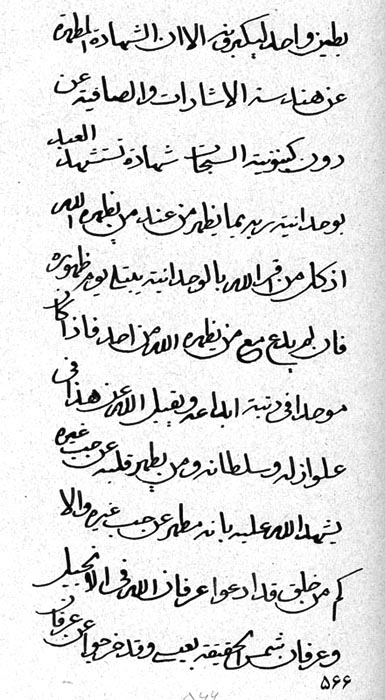 بطین واحد لیکبرونه الا ان الشهادة المطهرة
عن هندسة الاشارات والصافیة عن
دون کینونیة السبحات شهادة تستشهد العبد
بوحدانیة ربه بما یظهر من عند من یظهره الله
اذ کل من اقر الله بالوحدانیة یبتلی یوم ظهوره
فان لم یدع مع من یظهره الله من احد فاذا کان
موحدا فی رتبة ابداعه ویقبل الله عن هذا فی
علو ازله وسلطانه ومن یطهر قلبه عن حب غیره
یشهد الله علیه بانه مطهر عن حب غیره والا
کم من خلق قد ادعوا عرفان الله فی الانجیل
وعرفان شمس الحقیقة بعیسی وقد خرجوا عن عرفان
۵۶۶